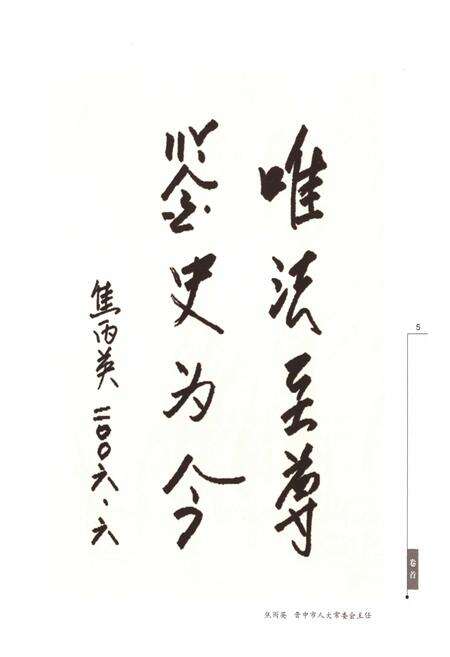 唯法至尊
鉴史为今
焦丙英 二〇〇六、六
5
卷首
焦丙英 晋中市人大常委会主任